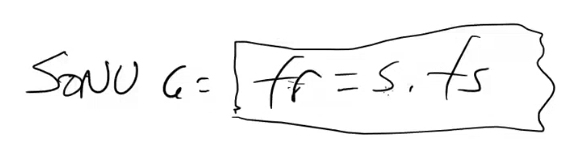 SONUÇ = fr = s . fs